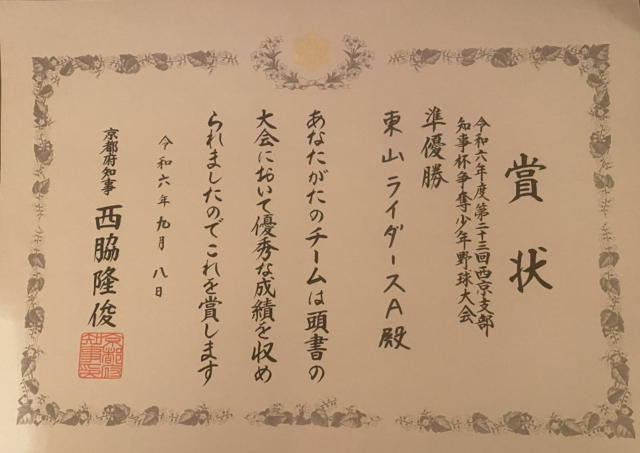 賞状
令和六年度第二十三回西京支部
知事杯争奪少年野球大会
準優勝
東山ライダースA殿
あなたがたのチームは頭書の
大会において優秀な成績を収め
られましたのでこれを賞します
令和六年九月八日
京都府知事 西脇隆俊
京都府知事之印